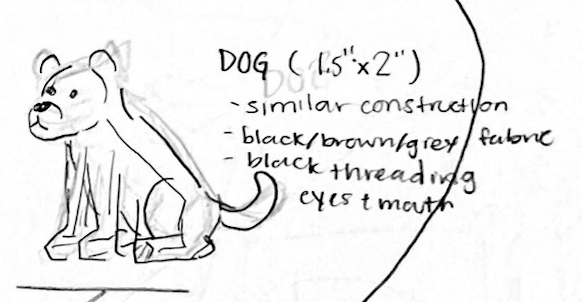 DOG (1.5"x2")
-similar construction
-black/brown/grey fabric
-black threading
eyes + mouth